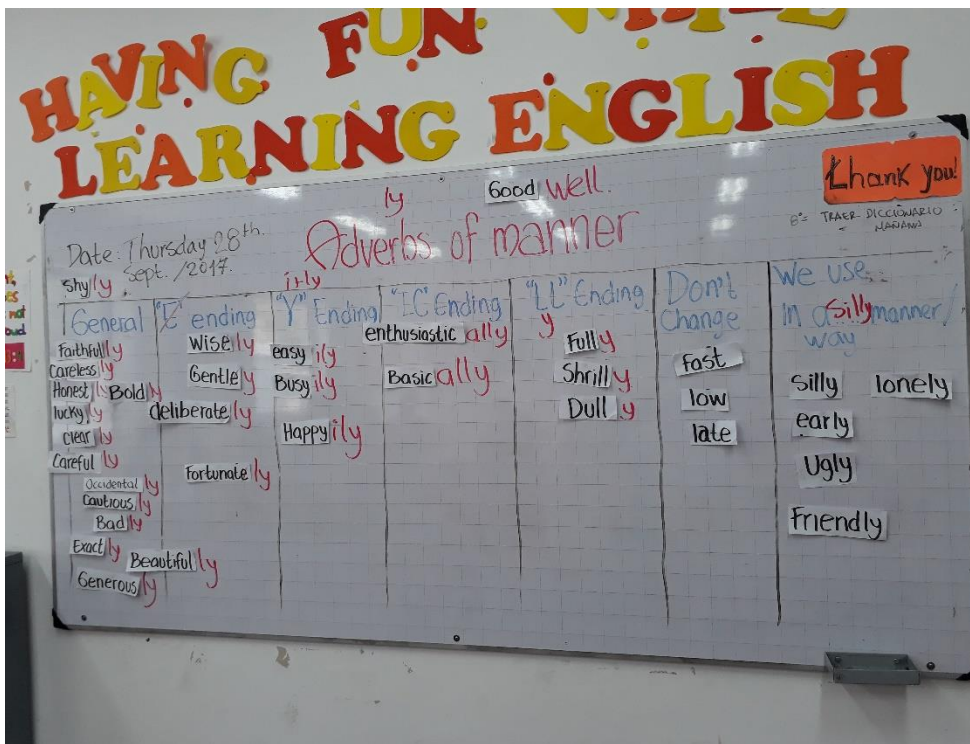 HAVING FUN WHILE
LEARNING ENGLISH
Thank you!
8°= TRAER DICCIONARIO
MAÑANA
ly
Good Well.
Adverbs of manner
Date: Thursday 28th.
Sept. /2017.
shy ly
General
Faithfull ly
Careless ly
Honest ly Bold ly
lucky ly
Clear ly
Careful ly
Occidental ly
Cautious ly
Bad ly
Exact ly Beautiful ly
Generous ly
"E" ending
Wise ly
Gentle y
deliberate ly
Fortunate ly
i+ly
"Y" Ending
easy ily
Busy ily
Happy ily
"IC" Ending
enthusiastic ally
Basic ally
"LL" Ending
y
Full y
Shrill y
Dull y
Don't
Change
fast
low
late
We use
in a silly manner/
way
Silly lonely
early
Ugly
Friendly